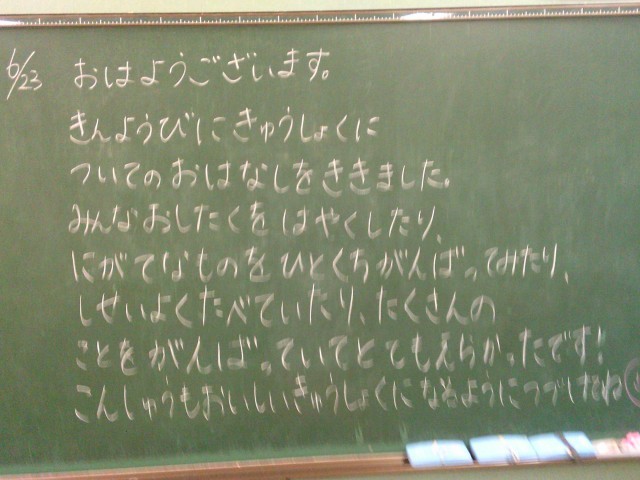 6/23 おはようございます。
きんようびにきゅうしょくに
ついてのおはなしをききました。
みんなおしたくをはやくしたり、
にがてなものをひとくちがんばってみたり、
しせいよくたべていたり、たくさんの
ことをがんばっていてとてもえらかったです!
こんしゅうもおいしいきゅうしょくになるようにつづけたね